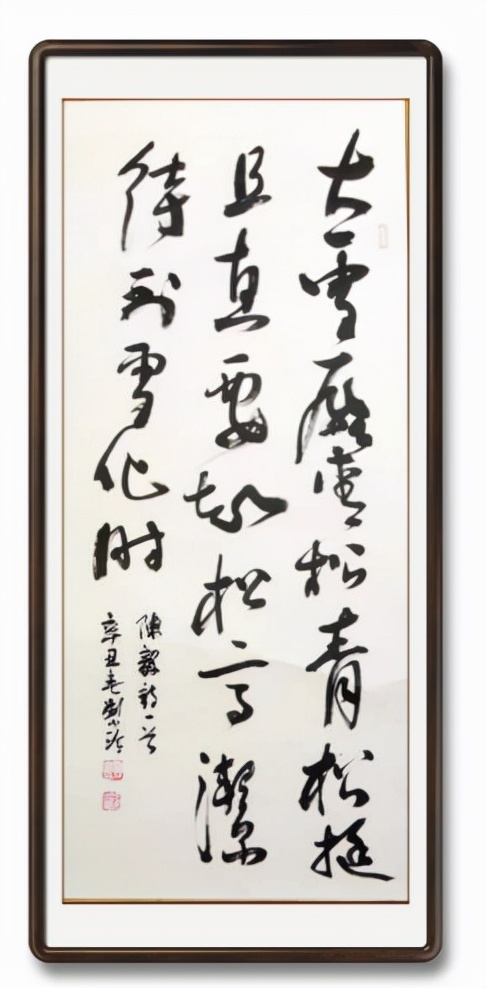 大雪壓青松青松挺
且直要知松高潔
待到雪化时
陳毅詩一首
辛丑